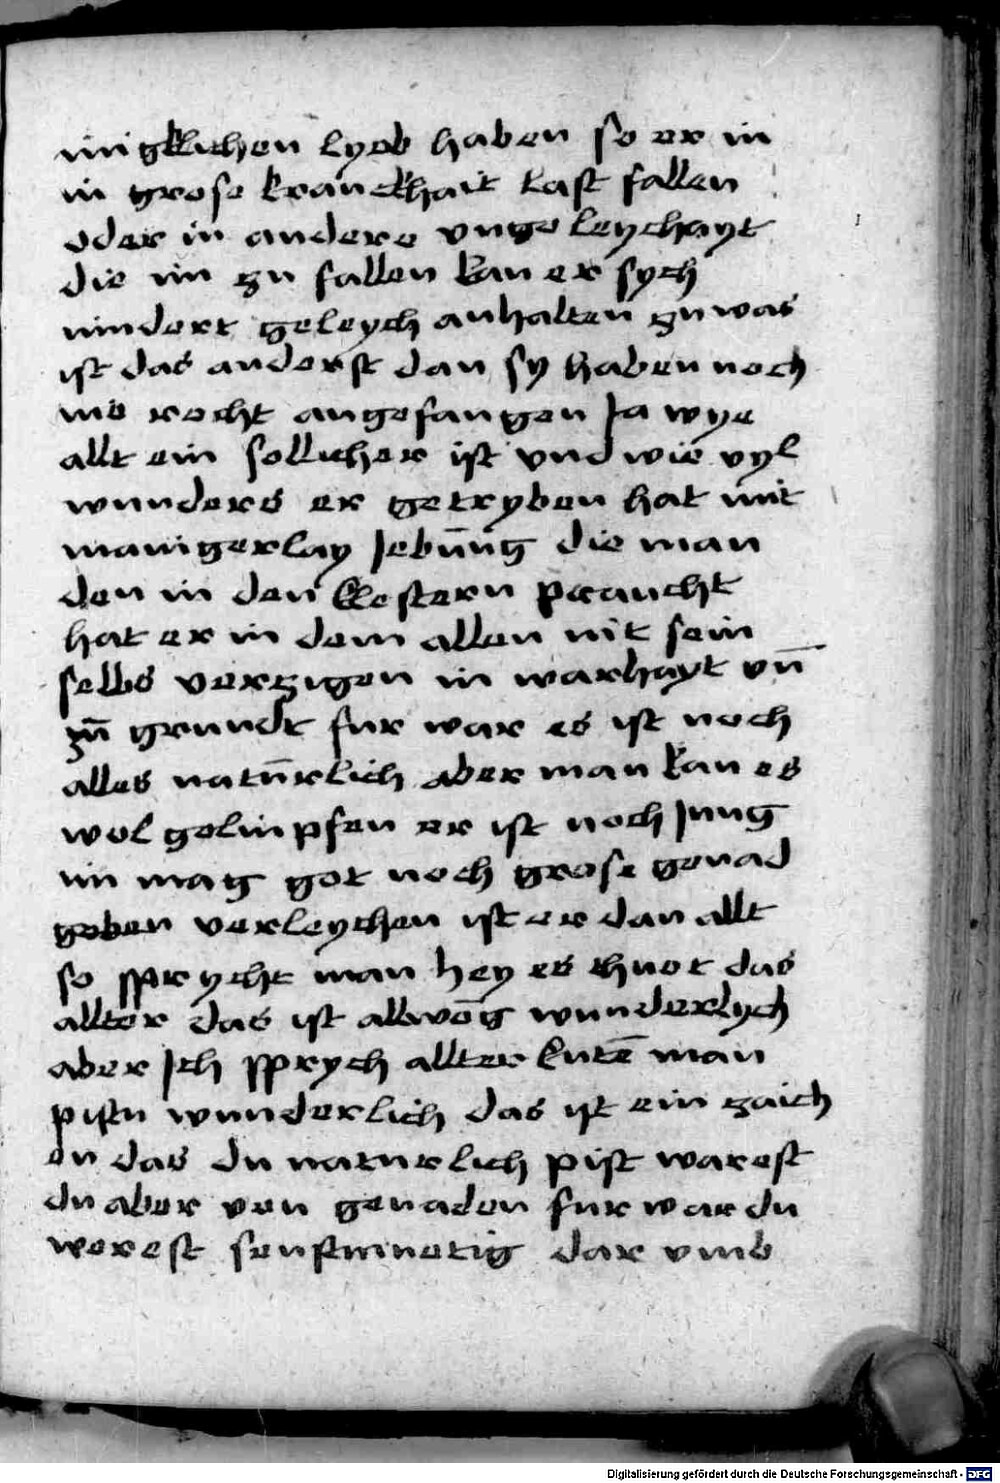 inigklichen lyeb haben so er in
in grose kranckhait last fallen
oder in andere ungeleychayt
die im zu fallen kan er sych
nindert geleych anhalten zu was
ist das anderst dan sy haben noch
nie recht angefangen Ja wye
allt ein sollicher ist vnd wie vyl
wunders er getryben hat mit
manigerlay Jebūng die man
den in den klestern praucht
hat er in dem allen nit sein
selbs verzigen in warhayt vn̄
zū grundt fur war es ist noch
alles natūrlich aber man kan es
wol gelinpfen er ist noch Jung
im mag got noch grose genad
geben verleychen ist er dan allt
so sprycht man hey es thuot das
allter das ist allwēg wunderlych
aber Jch sprych allter kutē man
pistu wunderlich das ist ein zaich
en das du naturlich pist warest
du aber von genaden fur war du
werest senftmuetig dar vmb
Digitalisierung gefördert durch die Deutsche Forschungsgemeinschaft - DFG